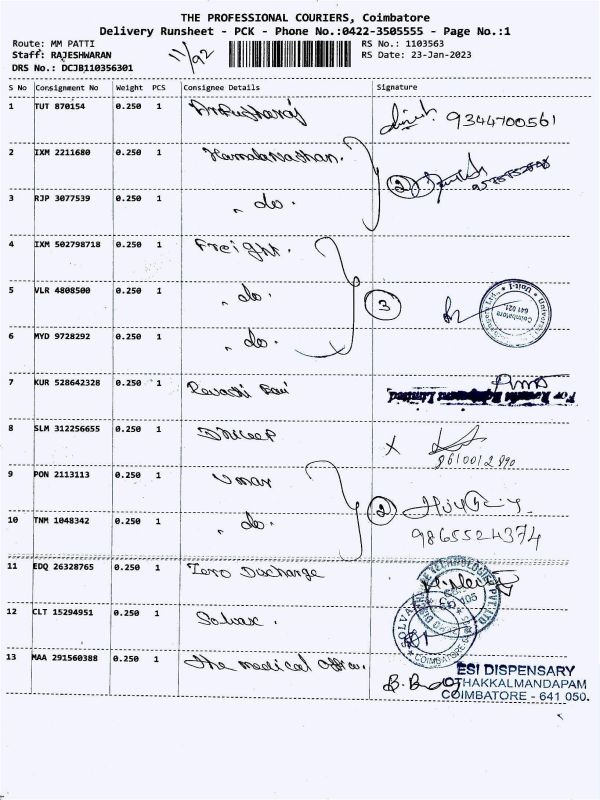 THE PROFESSIONAL COURIERS, Coimbatore
Delivery Runsheet - PCK - Phone No.:0422-3505555 - Page No.:1
Route: MM PATTI
Staff: RAJESHWARAN
DRS No.: DCJB110356301
11/92
RS No.: 1103563
RS Date: 23-Jan-2023
S No Consignment No Weight PCS Consignee Details Signature
1 TUT 870154 0.250 1 9344700561
2 IXM 2211680 0.250 1 Kamalanathan.
3 RJP 3077539 0.250 1 " do . 2
4 IXM 502798718 0.250 1 Freight .
5 VLR 4808500 0.250 1 " do . 3
Coimbatore 641 021 Unit-I
6 MYD 9728292 0.250 1 " do .
7 KUR 528642328 0.250 1 Revathi
For Equipments Limited
8 SLM 312256655 0.250 1 X
9 PON 2113113 0.250 1 Umar 2
10 TNM 1048342 0.250 1 " do . 9865524374
11 EDQ 26328765 0.250 1 Zero Discharge
12 CLT 15294951 0.250 1 Solvax .
COIMBATORE
13 MAA 291560388 0.250 1 The medical officer.
ESI DISPENSARY
OTHAKKALMANDAPAM
COIMBATORE - 641 050.